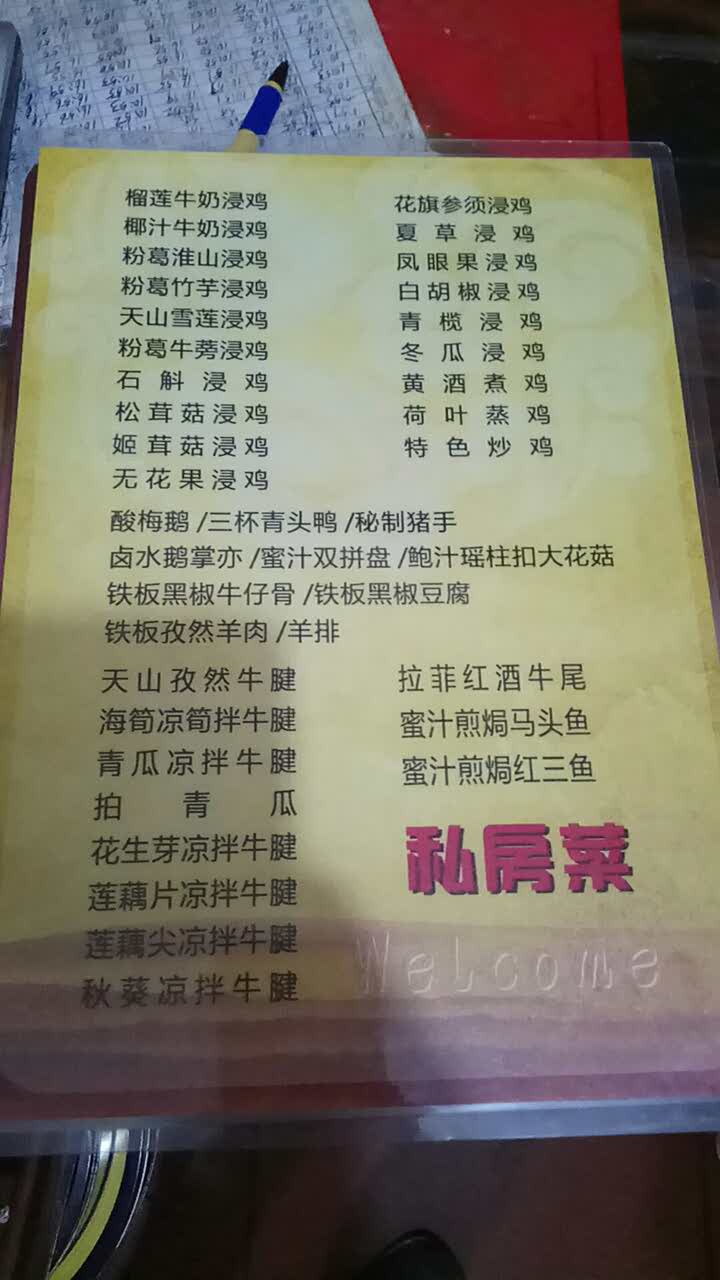 榴莲牛奶浸鸡
椰汁牛奶浸鸡
粉葛淮山浸鸡
粉葛竹芋浸鸡
天山雪莲浸鸡
粉葛牛蒡浸鸡
石斛浸鸡
松茸菇浸鸡
姬茸菇浸鸡
无花果浸鸡
花旗参须浸鸡
夏草浸鸡
凤眼果浸鸡
白胡椒浸鸡
青榄浸鸡
冬瓜浸鸡
黄酒煮鸡
荷叶蒸鸡
特色炒鸡
酸梅鹅/三杯青头鸭/秘制猪手
卤水鹅掌亦/蜜汁双拼盘/鲍汁瑶柱扣大花菇
铁板黑椒牛仔骨/铁板黑椒豆腐
铁板孜然羊肉/羊排
天山孜然牛腱
海筍凉筍拌牛腱
青瓜凉拌牛腱
拍青瓜
花生芽凉拌牛腱
莲藕片凉拌牛腱
莲藕尖凉拌牛腱
秋葵凉拌牛腱
拉菲红酒牛尾
蜜汁煎焗马头鱼
蜜汁煎焗红三鱼
私房菜
Welcome